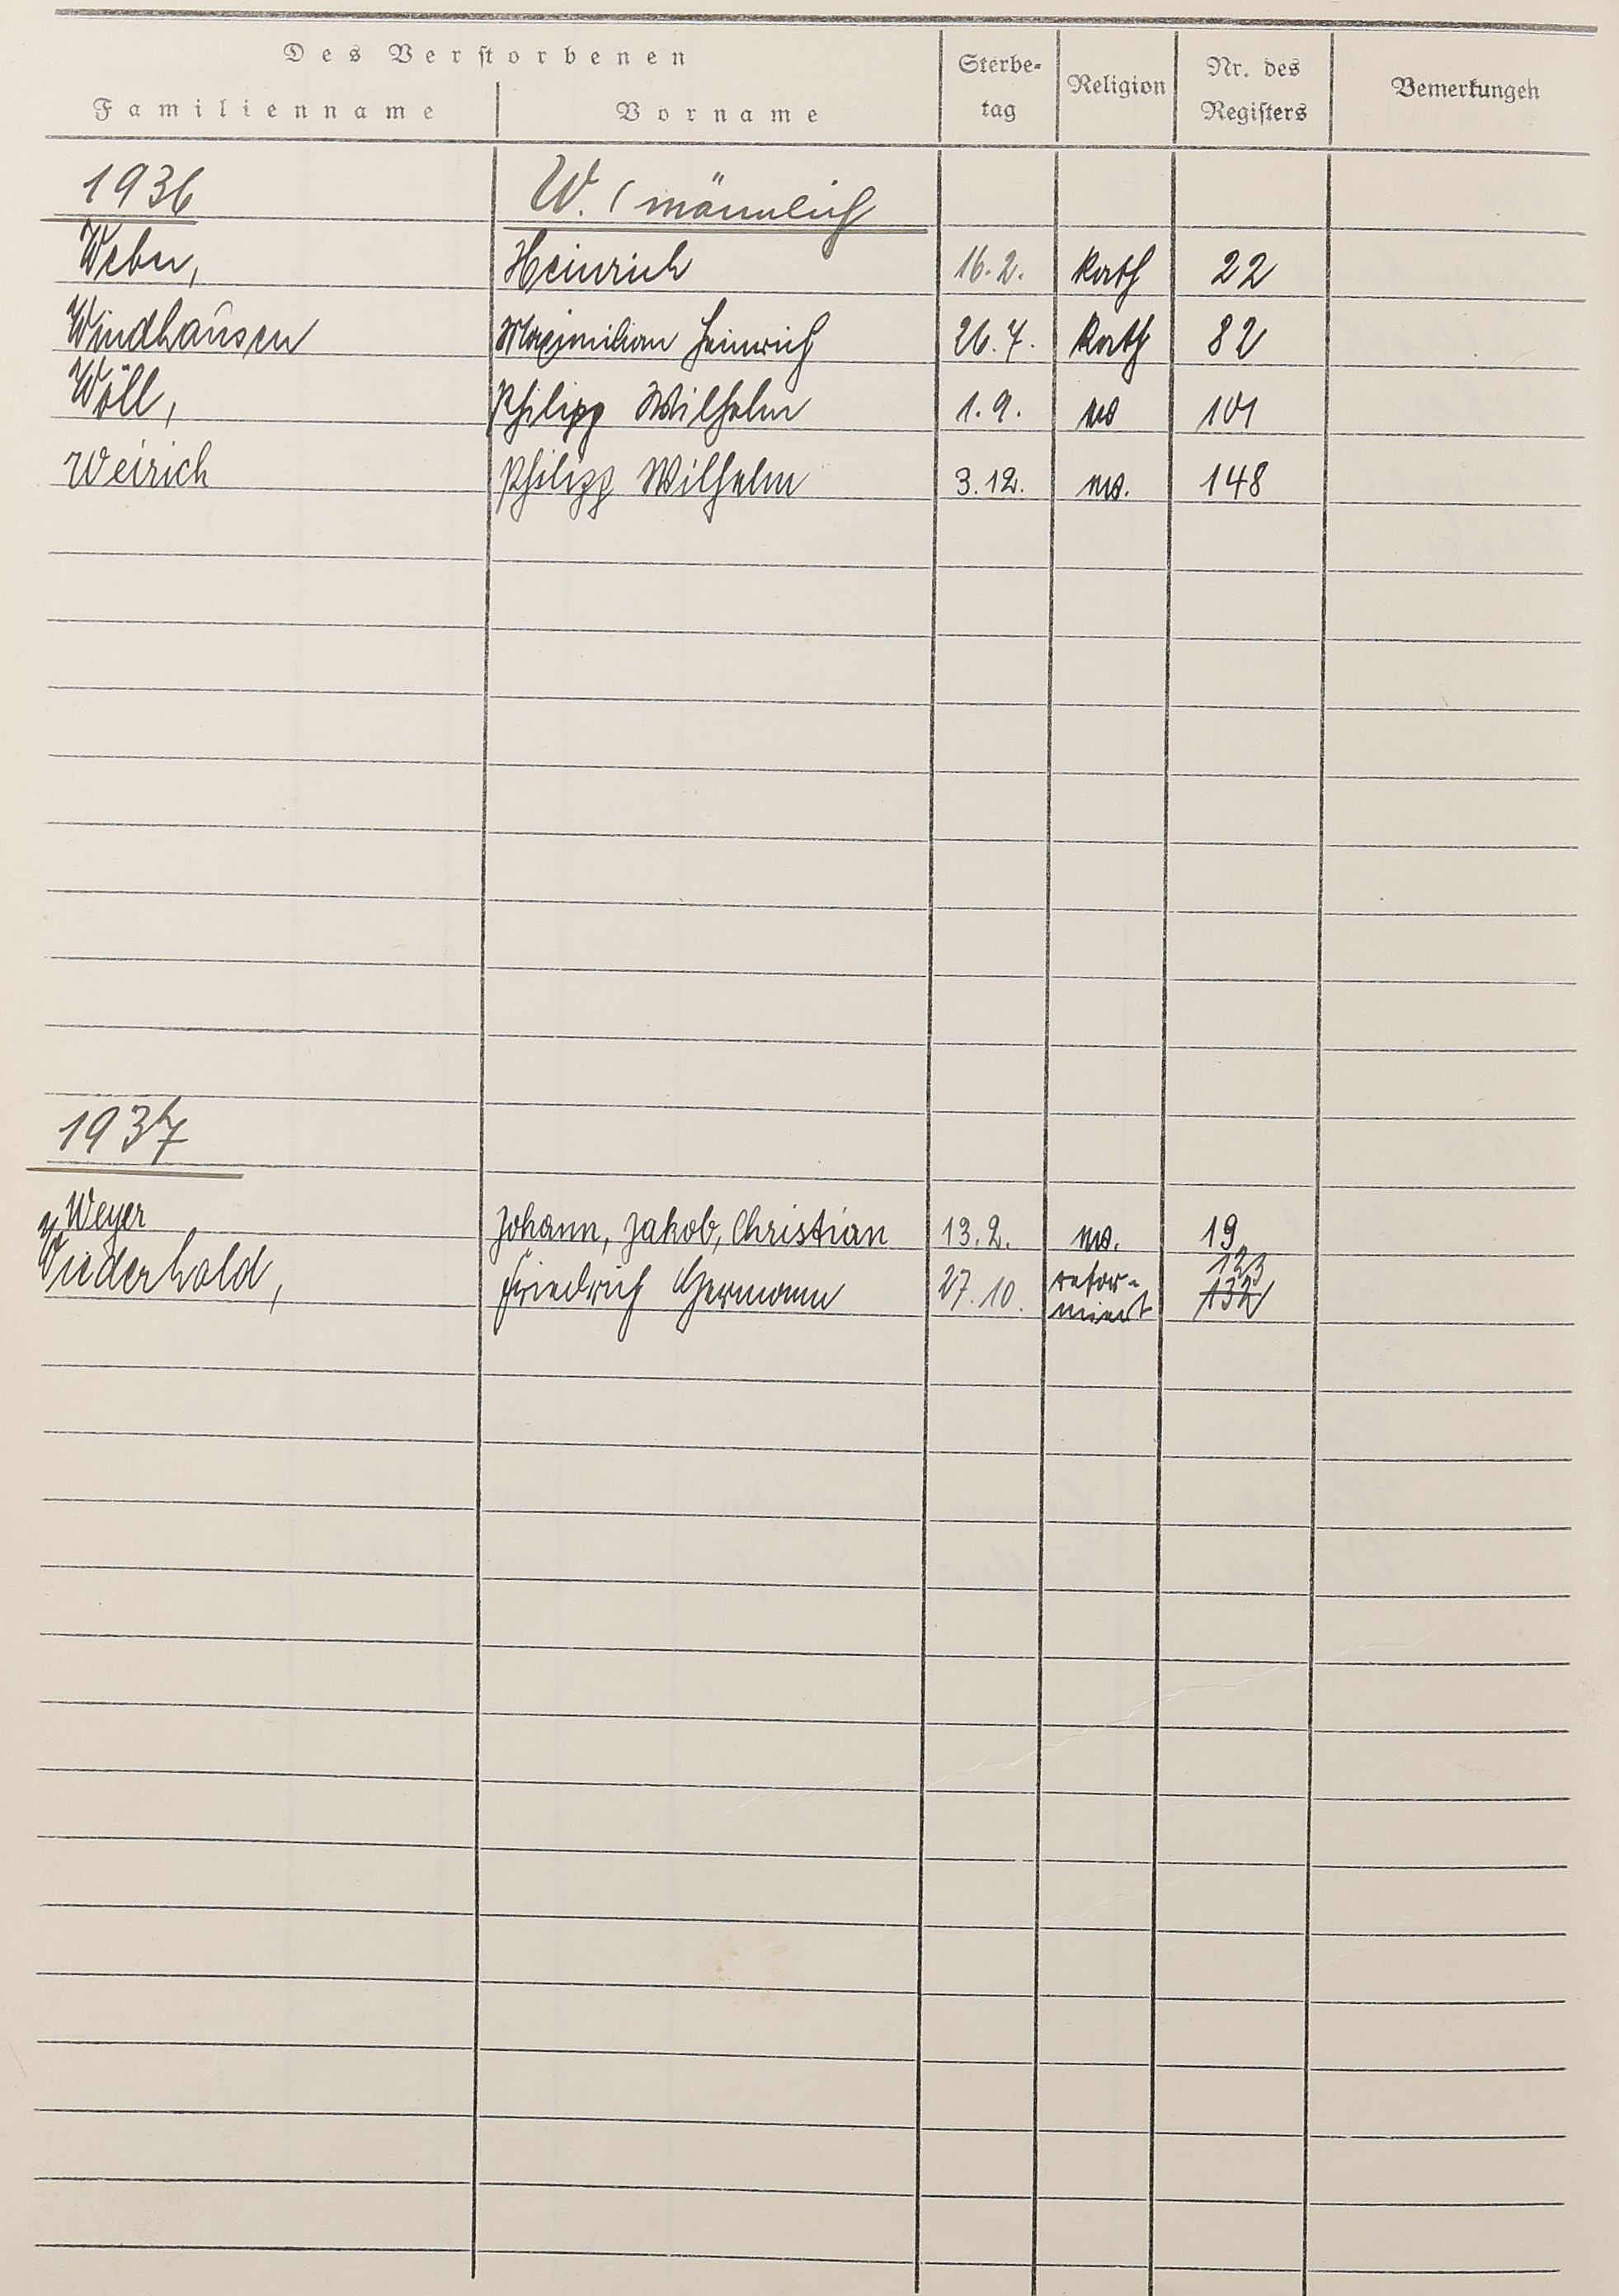 Des Verstorbenen
Familienname Vorname Sterbe-tag Religion Nr. des Registers Bemerkungen
1936 W. (männlich
Weber, Heinrich 16.2. kath 22
Windhausen Maximilian Heinrich 26.7. kath 82
Wöll, Philipp Wilhelm 1.9. 101
Weirich Philipp Wilhelm 3.12. 148
1937
Weyer Johann, Jakob, Christian 13.2. 19
Wiederhold, Friedrich Hermann 27.10. refor-miert 123 132